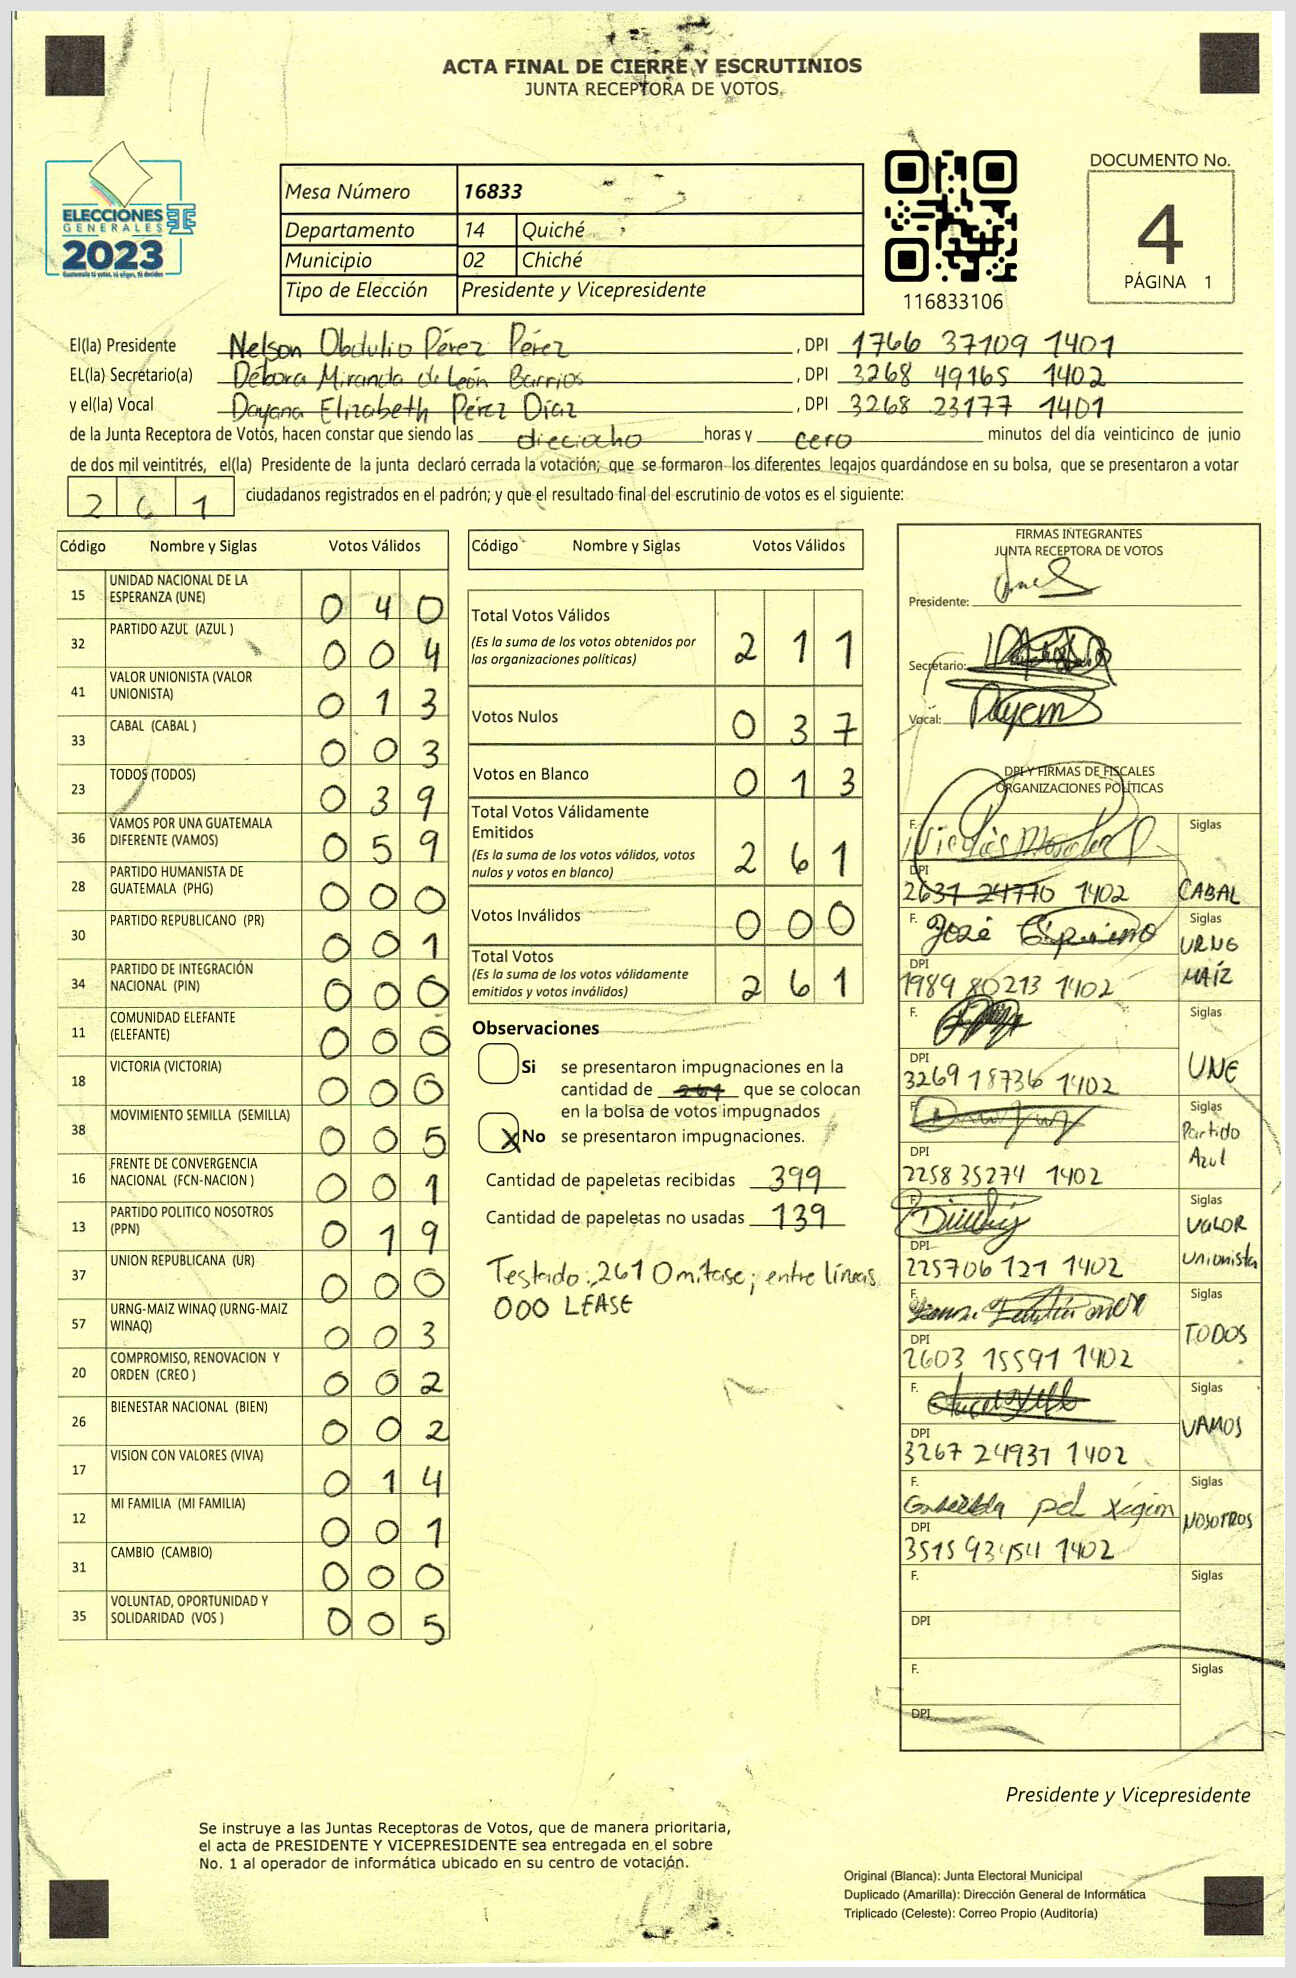 ACTA FINAL DE CIERRE Y ESCRUTINIOS
JUNTA RECEPTORA DE VOTOS.
ELECCIONES
GENERALES
2023
Guatemala tú votas, tú eliges, tú decides
Mesa Número 16833
Departamento 14 Quiché
Municipio 02 Chiché
Tipo de Elección Presidente y Vicepresidente
116833106
DOCUMENTO No.
4
PÁGINA 1
El(la) Presidente Nelson Obdulio Pérez Pérez , DPI 1766 37109 1401
EL(la) Secretario(a) Débora Miranda de León Barrios , DPI 3268 49165 1402
y el(la) Vocal Dayana Elizabeth Pérez Díaz , DPI 3268 23177 1401
de la Junta Receptora de Votos, hacen constar que siendo las dieciocho horas y cero minutos del día veinticinco de junio
de dos mil veintitrés, el(la) Presidente de la junta declaró cerrada la votación; que se formaron los diferentes legajos guardándose en su bolsa, que se presentaron a votar
261 ciudadanos registrados en el padrón; y que el resultado final del escrutinio de votos es el siguiente:
Código Nombre y Siglas Votos Válidos
15 UNIDAD NACIONAL DE LA ESPERANZA (UNE) 040
32 PARTIDO AZUL (AZUL ) 004
41 VALOR UNIONISTA (VALOR UNIONISTA) 013
33 CABAL (CABAL ) 003
23 TODOS (TODOS) 039
36 VAMOS POR UNA GUATEMALA DIFERENTE (VAMOS) 059
28 PARTIDO HUMANISTA DE GUATEMALA (PHG) 000
30 PARTIDO REPUBLICANO (PR) 001
34 PARTIDO DE INTEGRACIÓN NACIONAL (PIN) 000
11 COMUNIDAD ELEFANTE (ELEFANTE) 000
18 VICTORIA (VICTORIA) 000
38 MOVIMIENTO SEMILLA (SEMILLA) 005
16 FRENTE DE CONVERGENCIA NACIONAL (FCN-NACION ) 001
13 PARTIDO POLITICO NOSOTROS (PPN) 019
37 UNION REPUBLICANA (UR) 000
57 URNG-MAIZ WINAQ (URNG-MAIZ WINAQ) 003
20 COMPROMISO, RENOVACION Y ORDEN (CREO ) 002
26 BIENESTAR NACIONAL (BIEN) 002
17 VISION CON VALORES (VIVA) 014
12 MI FAMILIA (MI FAMILIA) 001
31 CAMBIO (CAMBIO) 000
35 VOLUNTAD, OPORTUNIDAD Y SOLIDARIDAD (VOS ) 005
Código Nombre y Siglas Votos Válidos
Total Votos Válidos 211
(Es la suma de los votos obtenidos por
las organizaciones políticas)
Votos Nulos 037
Votos en Blanco 013
Total Votos Válidamente
Emitidos 261
(Es la suma de los votos válidos, votos
nulos y votos en blanco)
Votos Inválidos 000
Total Votos 261
(Es la suma de los votos válidamente
emitidos y votos inválidos)
Observaciones
Si se presentaron impugnaciones en la
cantidad de 261 que se colocan
en la bolsa de votos impugnados
X No se presentaron impugnaciones.
Cantidad de papeletas recibidas 399
Cantidad de papeletas no usadas 139
Testado: 261 Omitase; entre líneas
000 LEASE
FIRMAS INTEGRANTES
JUNTA RECEPTORA DE VOTOS
Presidente:
Secretario:
Vocal:
DPI Y FIRMAS DE FISCALES
ORGANIZACIONES POLÍTICAS
F. Siglas
DPI
2637 24770 1402 CABAL
F. José Siglas
URNG
DPI MAÍZ
1989 80213 1402
F. Siglas
DPI UNE
3269 18736 1402
F. Siglas
Partido
DPI Azul
2258 35274 1402
F. Siglas
VALOR
DPI Unionista
225706 121 1402
F. Siglas
DPI TODOS
2603 15591 1402
F. Siglas
DPI VAMOS
3267 24931 1402
F. Siglas
DPI NOSOTROS
3515 93454 1402
F. Siglas
DPI
F. Siglas
DPI
Presidente y Vicepresidente
Se instruye a las Juntas Receptoras de Votos, que de manera prioritaria,
el acta de PRESIDENTE Y VICEPRESIDENTE sea entregada en el sobre
No. 1 al operador de informática ubicado en su centro de votación.
Original (Blanca): Junta Electoral Municipal
Duplicado (Amarilla): Dirección General de Informática
Triplicado (Celeste): Correo Propio (Auditoría)